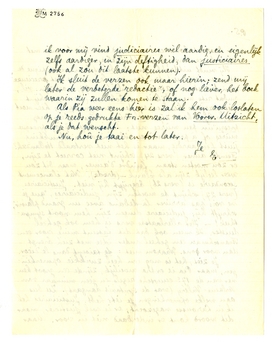 2756
ik voor mij vind justiciaires wel aardig, en eigenlijk
zelfs aardiger, in zijn deftigheid, dan justiciaires
(ook al zou dit laatste kunnen).
Ik sluit de verzen ook maar hierin; zend mij
later de verbeterde "redactie", of nog liever het boek
waarin zij zullen komen te staan.
Als Pia weer eens hier is zal ik hem ook loslaten
op je reeds gedrukte Fr. verzen van Voor- Uitzicht,
als je dat wenscht.
Nu, hou je taai en tot later.
Je
E.